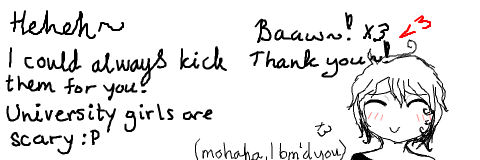 Heheh~
I could always kick
them for you!
University girls are
scary :P
Baaw~! x3 <3
Thank you~!
(mohaha, I bm'd you)